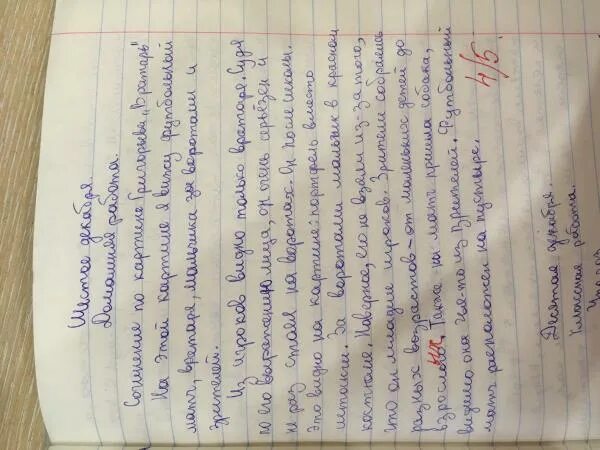 Шестое декабря.
Домашняя работа.
Сочинение по картине Григорьева „Вратарь"
На этой картине я вижу футбольный
матч, вратаря, мальчика за воротами и
зрителей.
Из игроков видно только вратаря. Судя
по его выражению лица, он очень серьёзен и
не раз стоял на воротах. Он после школы.
Это видно на картине: портфель вместо
штанги. За воротами мальчик в красном
костюме. Наверное, его не взяли из-за того,
что он младше игроков. Зрители собрались
разных возрастов – от маленьких детей до
взрослых. Также на матч пришла собака,
видимо она чья-то из зрителей. Футбольный
матч расположен на пустыре.
4/5
Десятое декабря.
Классная работа.